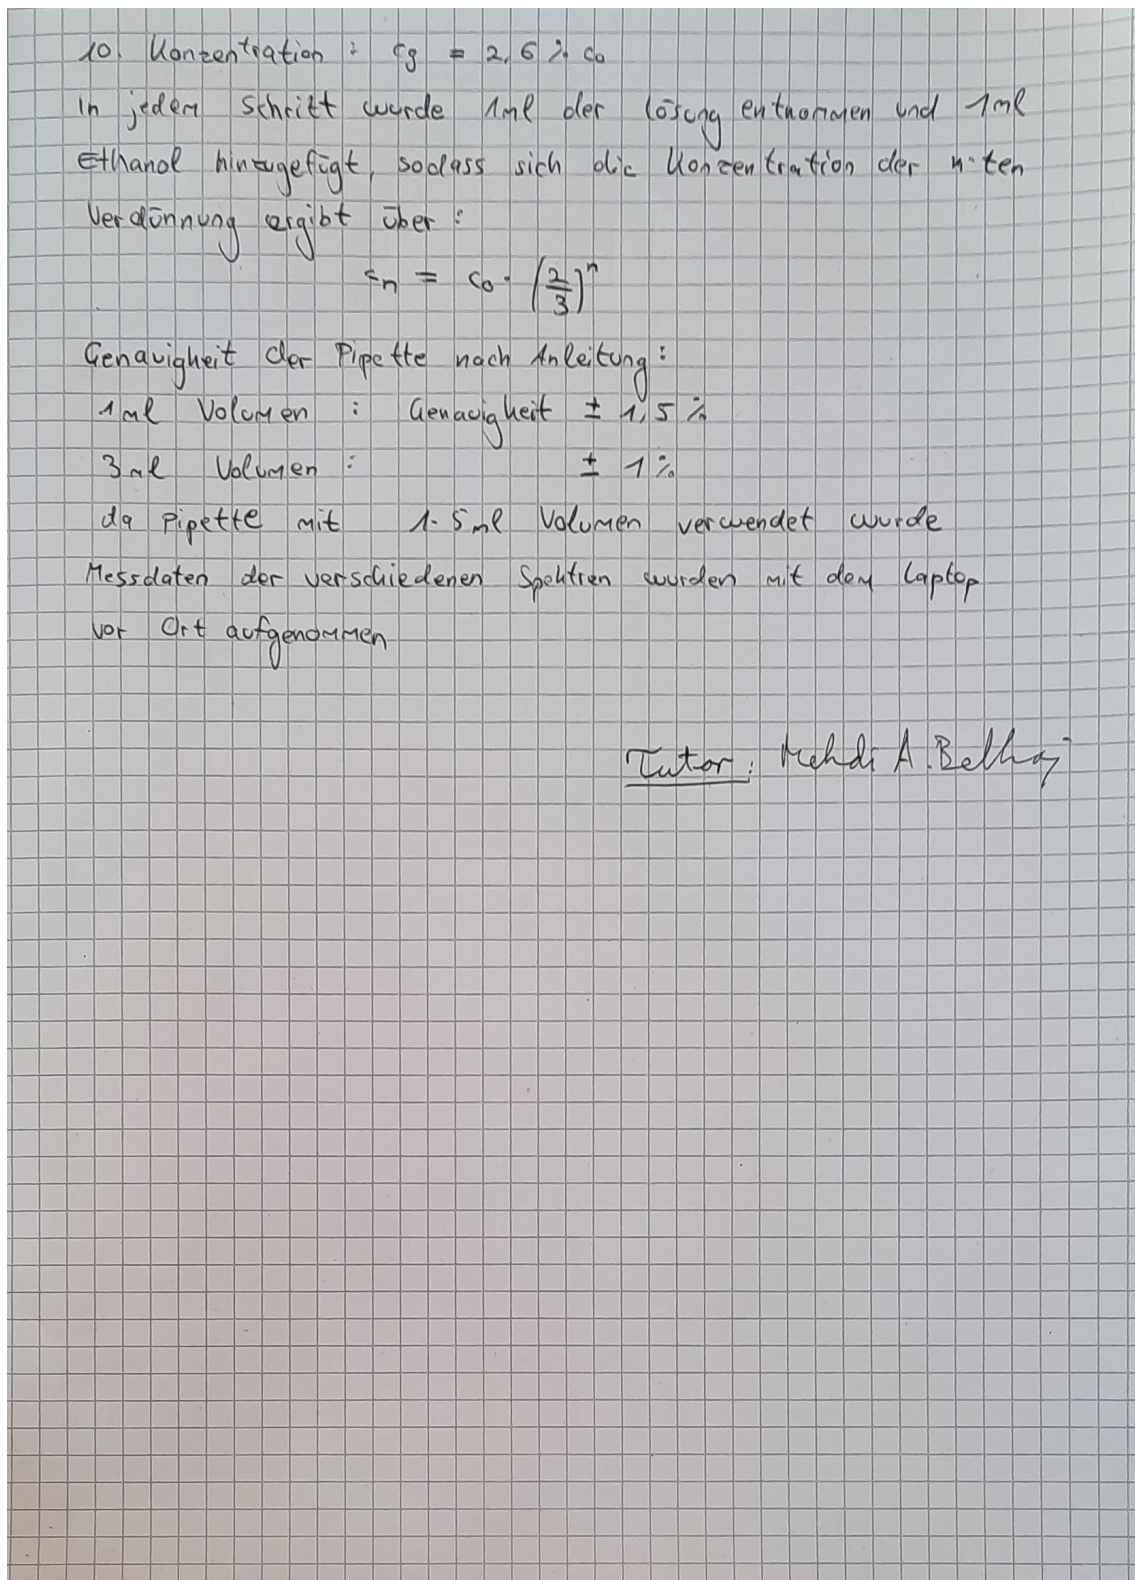 10. Konzentration : c9 = 2,6 % c0
In jedem Schritt wurde 1ml der Lösung entnommen und 1ml
Ethanol hinzugefügt, sodass sich die Konzentration der n-ten
Verdünnung ergibt über :
cn = c0 · (2/3)^n
Genauigkeit der Pipette nach Anleitung :
1ml Volumen : Genauigkeit ± 1,5 %
3ml Volumen : ± 1 %
da Pipette mit 1-5ml Volumen verwendet wurde
Messdaten der verschiedenen Spektren wurden mit dem Laptop
vor Ort aufgenommen
Tutor : Mehdi A. Belhaj